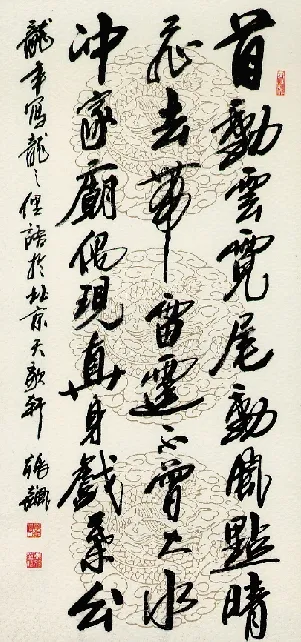 首動雲霓尾動風點睛
飛去帶雷霆不曾大水
沖家廟偶現真身戲葉公
龍年寫龍之俚語於北京天歌軒